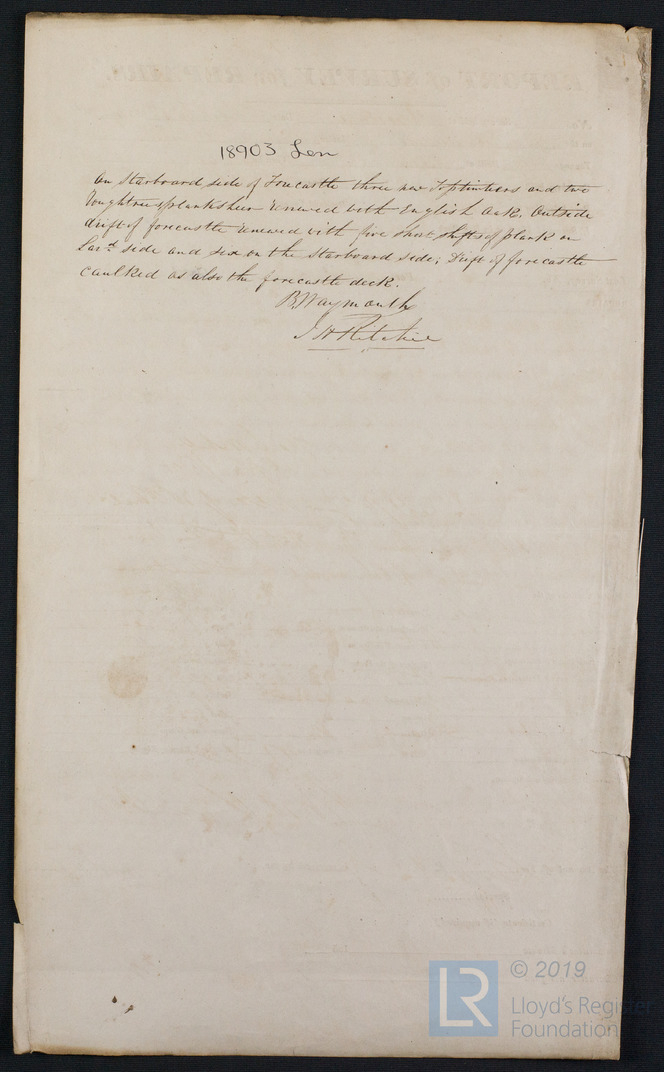 18903 Lon
On Starboard side of Forecastle three new Toptimbers and two
Roughtrees planksheer renewed with English Oak. Outside
drift of forecastle renewed with five short shifts of plank on
Lar.d side and six on the Starboard side; Drift of forecastle
caulked as also the forecastle deck.
B Waymouth
J H Ritchie
© 2019
LR
Lloyd's Register
Foundation